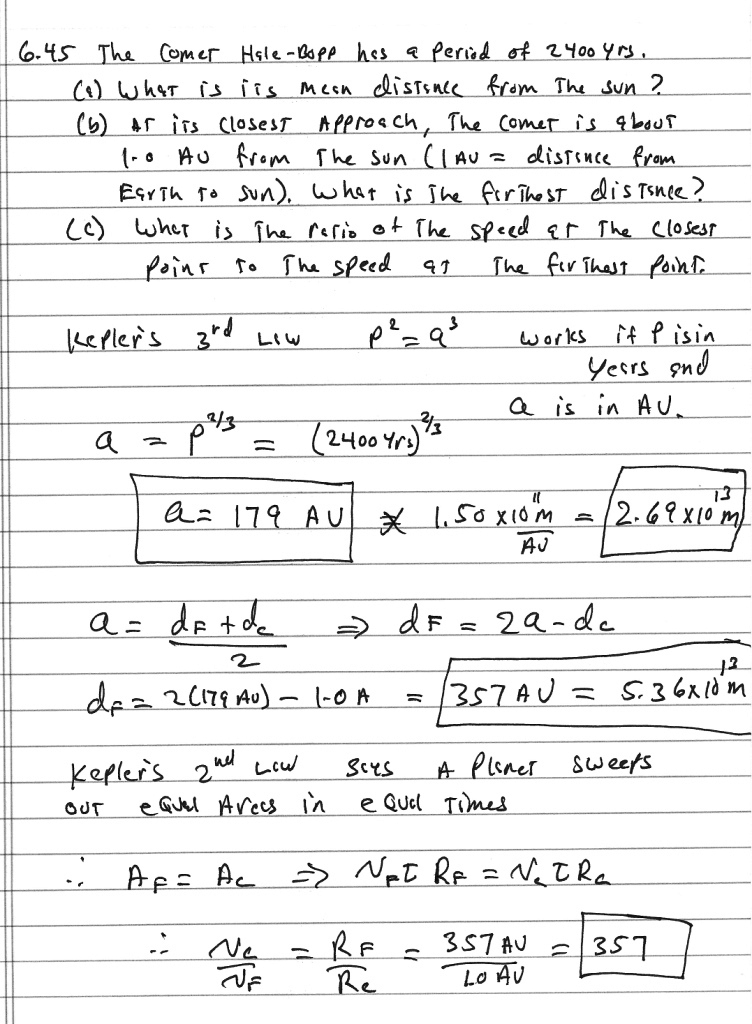 6.45 The Comet Hale-Bopp has a period of 2400 yrs.
(a) What is its mean distance from The sun?
(b) At its closest Approach, The comet is about
1.0 AU from The sun (1 AU = distance from
Earth To sun). What is The farthest distance?
(c) What is The ratio of The speed at The closest
point To The speed at The farthest point.
Kepler's 3rd Law P² = a³ works if P is in
years and
a is in AU.
a = P^2/3 = (2400 yrs)^2/3
a = 179 AU * 1.50 x10^11 m/AU = 2.69 x10^13 m
a = (dF + dc)/2 ⇒ dF = 2a - dc
dF = 2(179 AU) - 1.0 A = 357 AU = 5.36x10^13 m
Kepler's 2nd Law says A Planet sweeps
out equal Areas in equal Times
∴ AF = Ac ⇒ VFτ RF = Vc τ Rc
∴ Vc/VF = RF/Rc = 357 AU/1.0 AU = 357